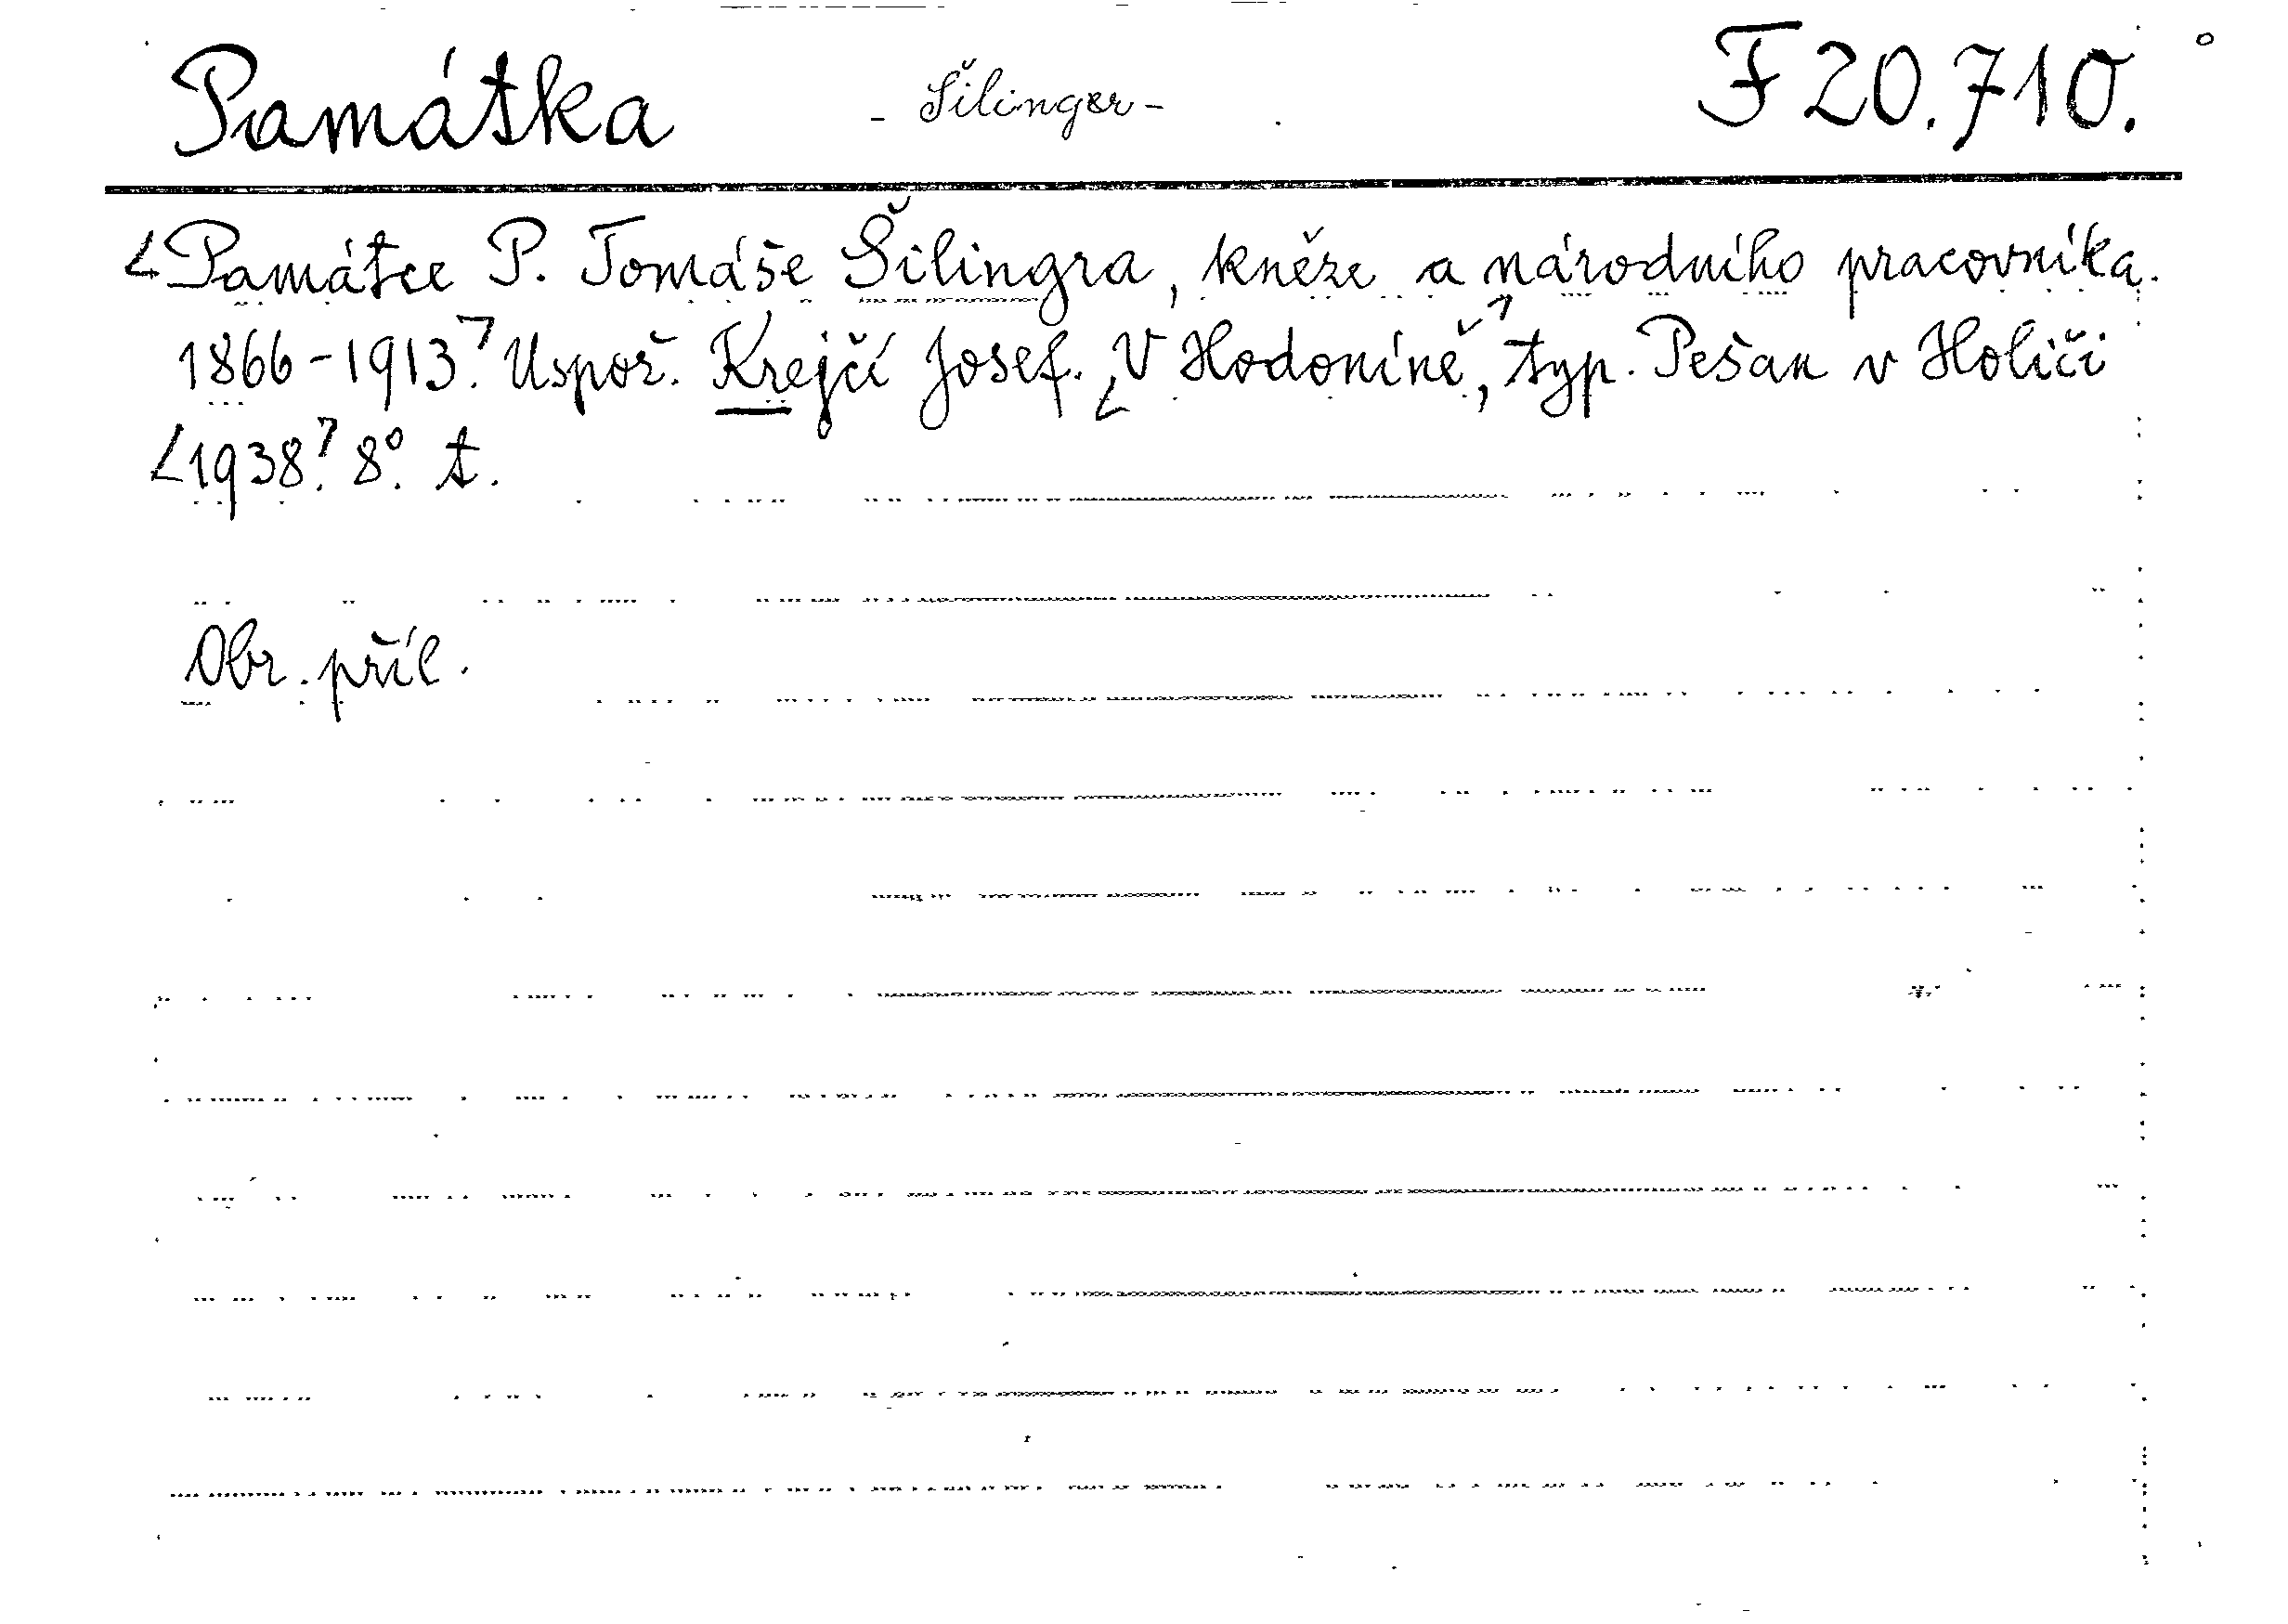 Památka - Šilinger - F 20.710.
Památce P. Tomáše Šilingra, kněze a národního pracovníka.
1866-1913. Uspoř. Krejčí Josef. V Hodoníně, typ. Pešan v Holiči
1938. 8°. t.
Obr. příl.